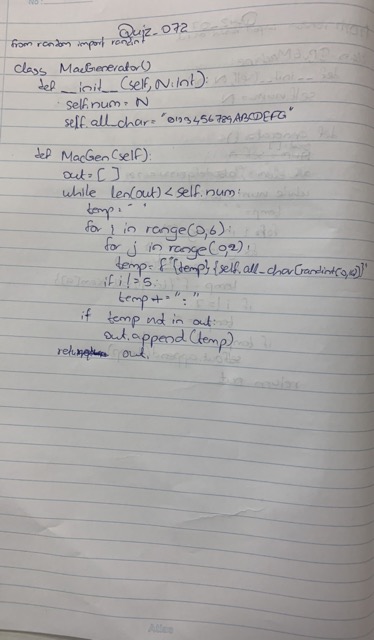 Quiz_072
from random import randint
class MacGenerator()
def __init__(self, N:int):
self.num = N
self.all_char = "0123456789ABCDEFG"
def MacGen(self):
out = [ ]
while len(out) < self.num:
temp = " "
for i in range(0,6):
for j in range(0,2):
temp = f"{temp}{self.all_char[randint(0,16)]}"
if i != 5:
temp += ":"
if temp not in out:
out.append(temp)
return out.
Atlas